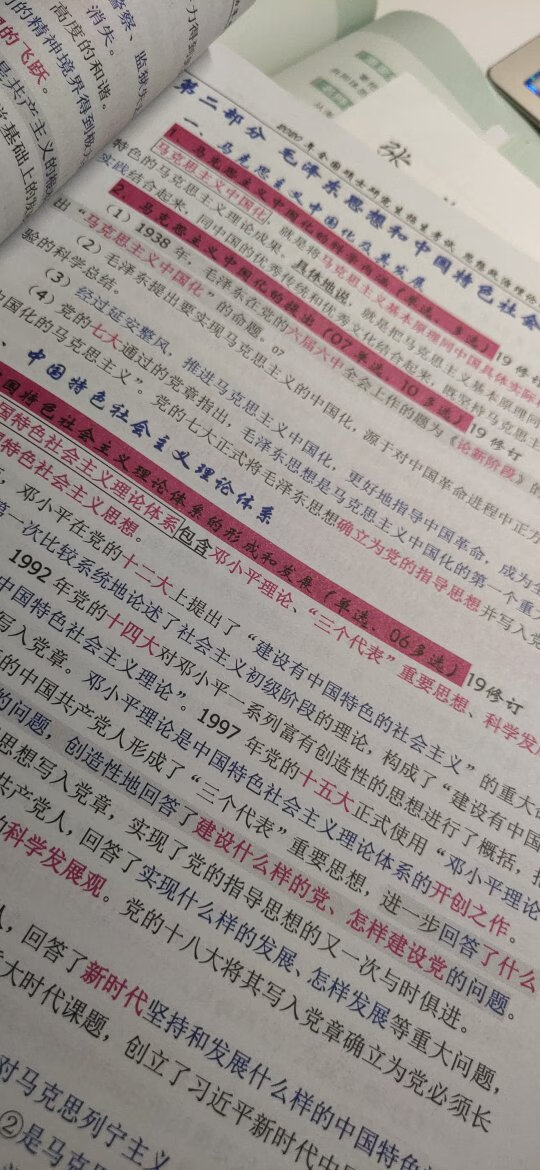 警察、监狱
消失。
高度的和谐。
的精神境界得到极
的飞跃。
是共产主义的
学基础上的
张
2020年全国硕士研究生招生考试 思想政治理论
第二部分 毛泽东思想和中国特色社会
一、马克思主义中国化及其发展
1. 马克思主义中国化的科学内涵(单选、多选)19修
马克思主义中国化,就是将马克思主义基本原理同中国具体实际
特色的马克思主义理论成果。具体地说,就是把马克思主义基本原理同
实践结合起来,同中国的优秀传统和优秀文化结合起来,既坚持马克思主
2. 马克思主义中国化的提出(07单选、10多选)19修订
(1)1938年,毛泽东在党的六届六中全会上作的题为《论新阶段》的
出“马克思主义中国化”的命题。07
(2)毛泽东提出要实现马克思主义的中国化,源于对中国革命进程中正
验的科学总结。
(3)经过延安整风,推进马克思主义中国化,更好地指导中国革命,成为全
(4)党的七大通过的党章指出,毛泽东思想是马克思主义中国化的第一个重大
中国化的马克思主义”。党的七大正式将毛泽东思想确立为党的指导思想并写入党
、中国特色社会主义理论体系
国特色社会主义理论体系的形成和发展(单选、06多选)19修订
国特色社会主义理论体系包含邓小平理论、“三个代表”重要思想、科学发展
国特色社会主义思想。
,邓小平在党的十二大上提出了“建设有中国特色的社会主义”的重大
第一次比较系统地论述了社会主义初级阶段的理论,构成了“建设有中国
1992年党的十四大对邓小平一系列富有创造性的思想进行了概括,
中国特色社会主义理论”。1997年党的十五大正式使用“邓小平理论
写入党章。邓小平理论是中国特色社会主义理论体系的开创之作。
的中国共产党人形成了“三个代表”重要思想,进一步回答了什么
的问题,创造性地回答了建设什么样的党、怎样建设党的问题。
思想写入党章,实现了党的指导思想的又一次与时俱进。
共产党人,回答了实现什么样的发展、怎样发展等重大问题,
科学发展观。党的十八大将其写入党章确立为党必须长
人,回答了新时代坚持和发展什么样的中国特色
大时代课题,创立了习近平新时代中
对马克思列宁主义
②是马克